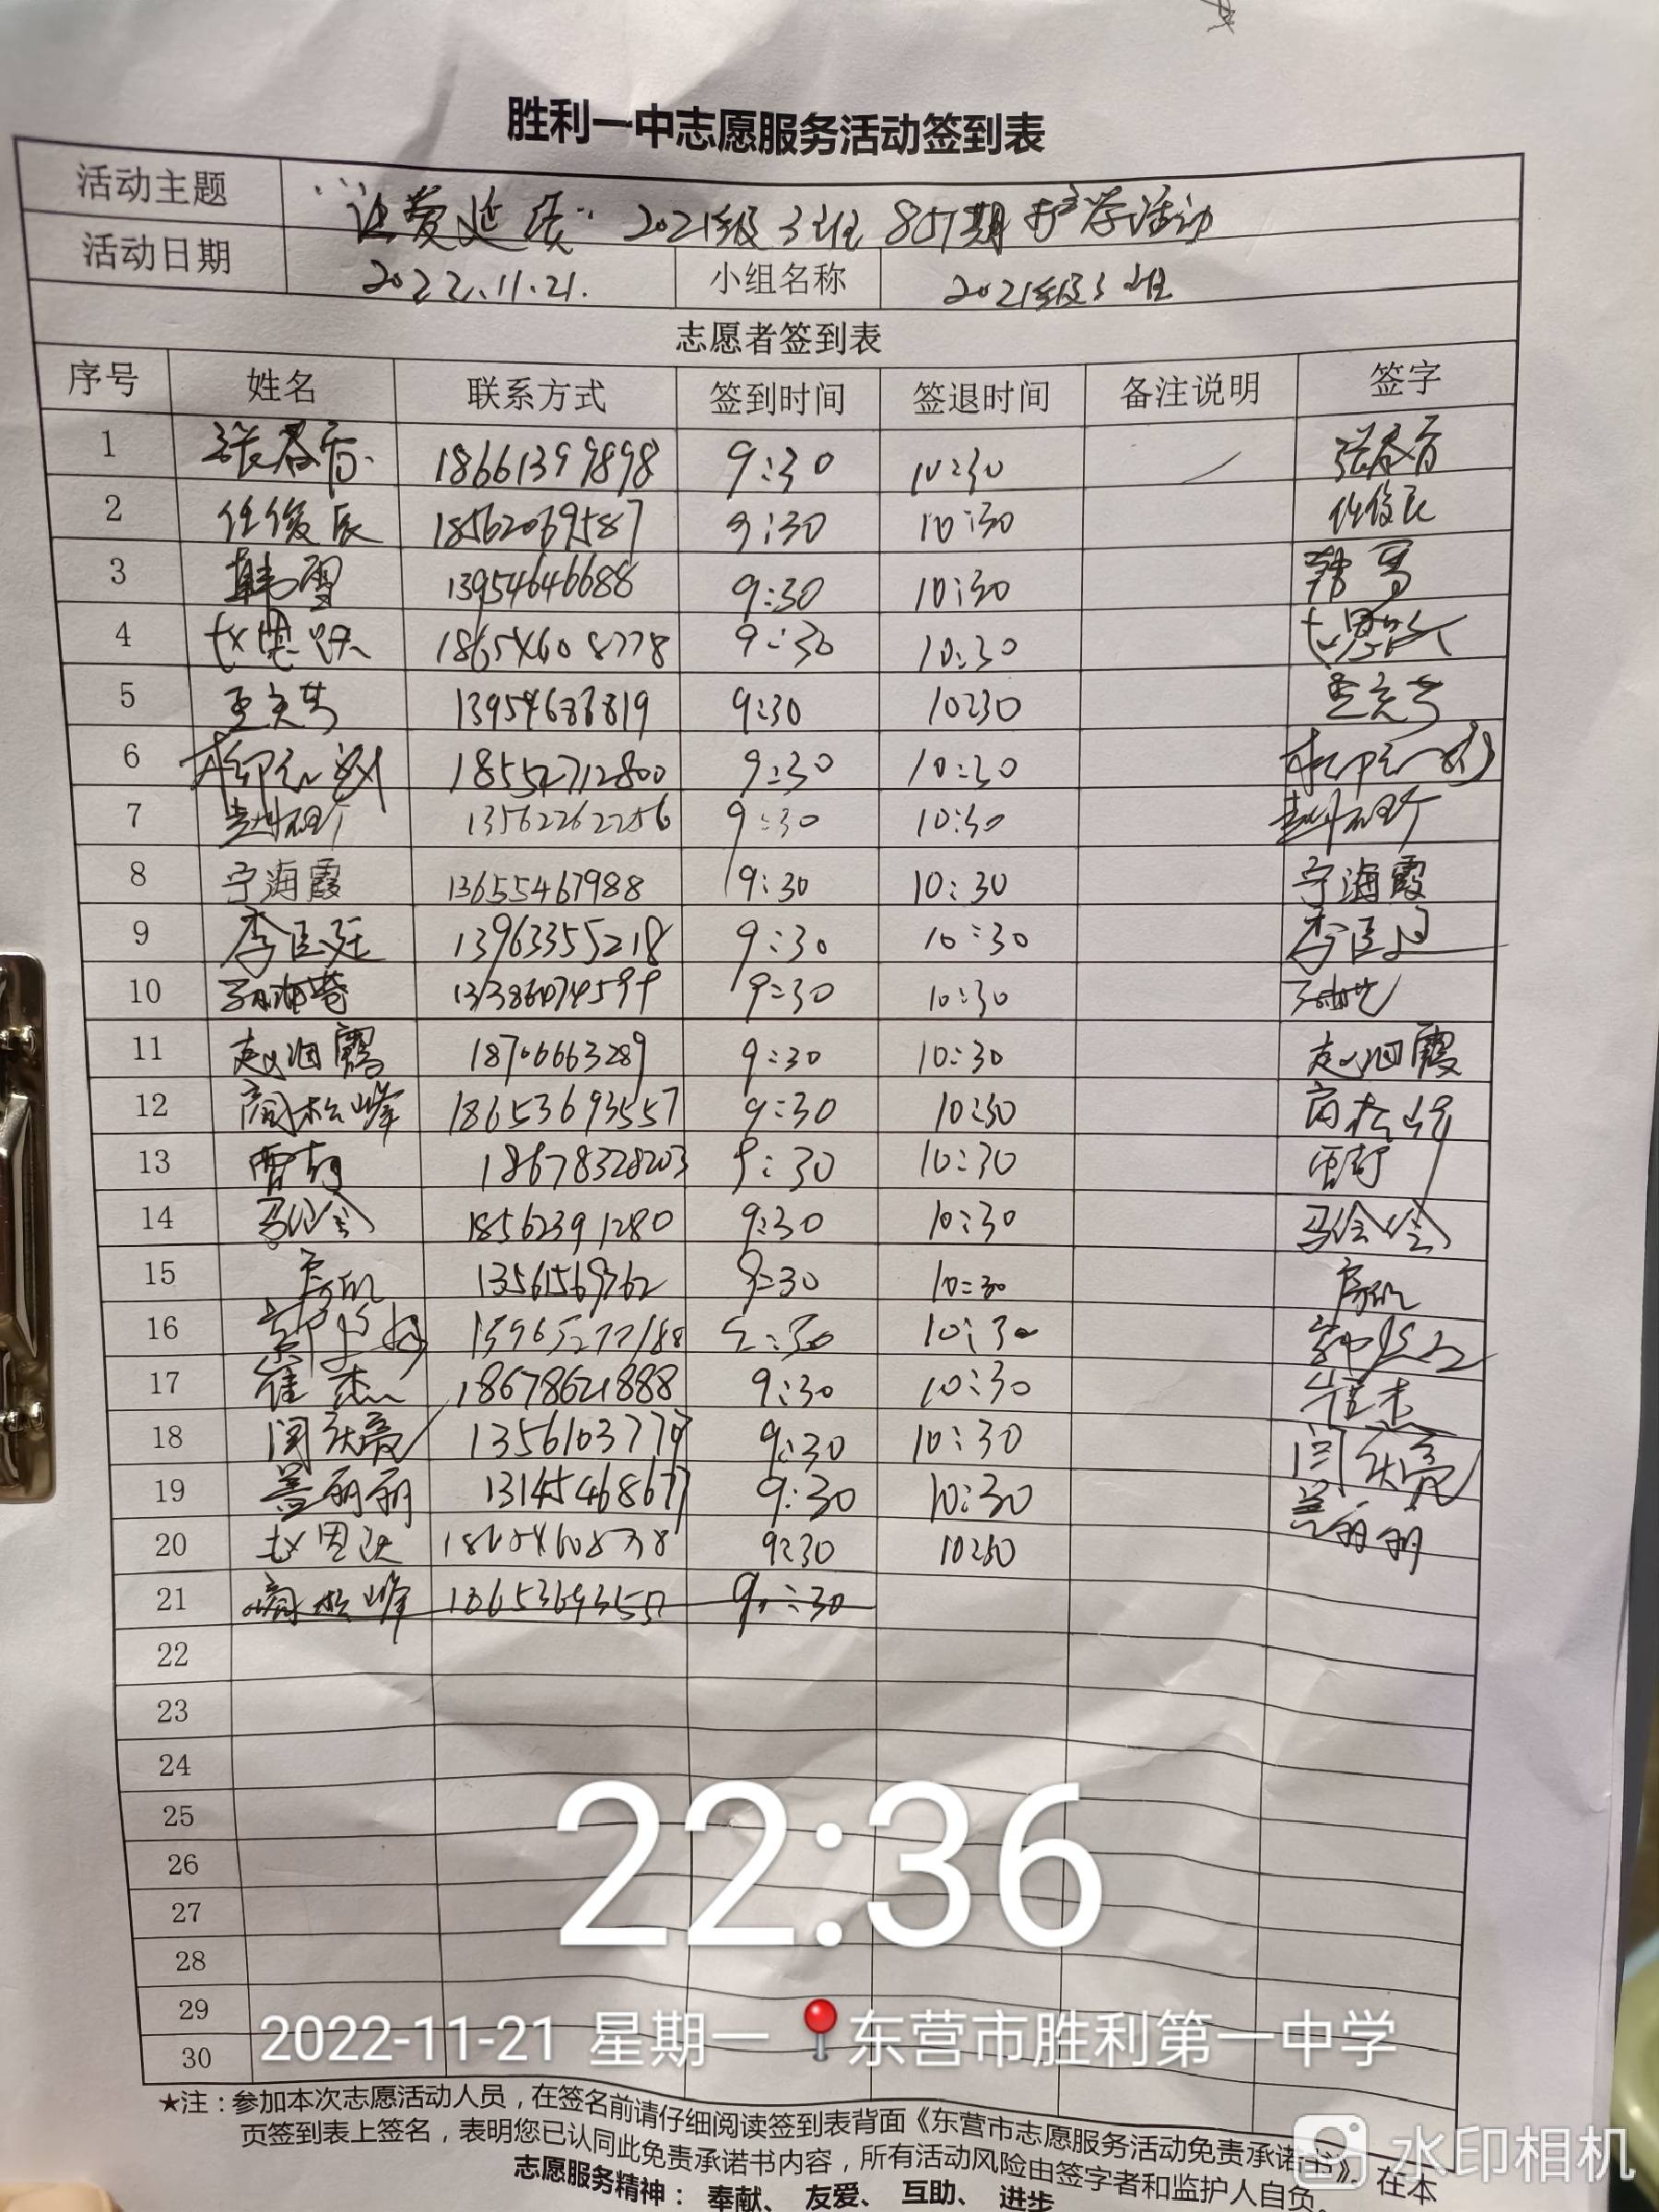 胜利一中志愿服务活动签到表
活动主题 "让爱延续" 2021级3班857期护学活动
活动日期 2022.11.21. 小组名称 2021级3班
志愿者签到表
序号 姓名 联系方式 签到时间 签退时间 备注说明 签字
1 张春香 18661399898 9:30 10:30 张春香
2 任俊辰 18562069587 9:30 10:30 任俊辰
3 韩雪 13954646688 9:30 10:30 韩雪
4 18654608778 9:30 10:30
5 13954683819 9:30 10:30
6 18552712800 9:30 10:30
7 赵研 13562262256 9:30 10:30 赵研
8 宁海霞 13655467988 9:30 10:30 宁海霞
9 李臣廷 13963355218 9:30 10:30
10 9:30 10:30
11 赵润霞 18706663289 9:30 10:30 赵润霞
12 商松峰 18653693557 9:30 10:30 商松峰
13 18678328203 9:30 10:30
14 18562391280 9:30 10:30
15 13561569762 9:30 10:30
16 13965277188 10:30
17 崔杰 18678621888 9:30 10:30 崔杰
18 闫庆亮 9:30 10:30 闫庆亮
19 盖丽丽 13145468677 9:30 10:30 盖丽丽
20 9:30 10:30
21 商松峰 9:30
22
23
24
25
26
27
28
29
30
22:36
2022-11-21 星期一 东营市胜利第一中学
★注：参加本次志愿活动人员，在签名前请仔细阅读签到表背面《东营市志愿服务活动免责承诺书》。在本
页签到表上签名，表明您已认同此免责承诺书内容，所有活动风险由签字者和监护人自负。
志愿服务精神： 奉献、 友爱、 互助、 进步
水印相机